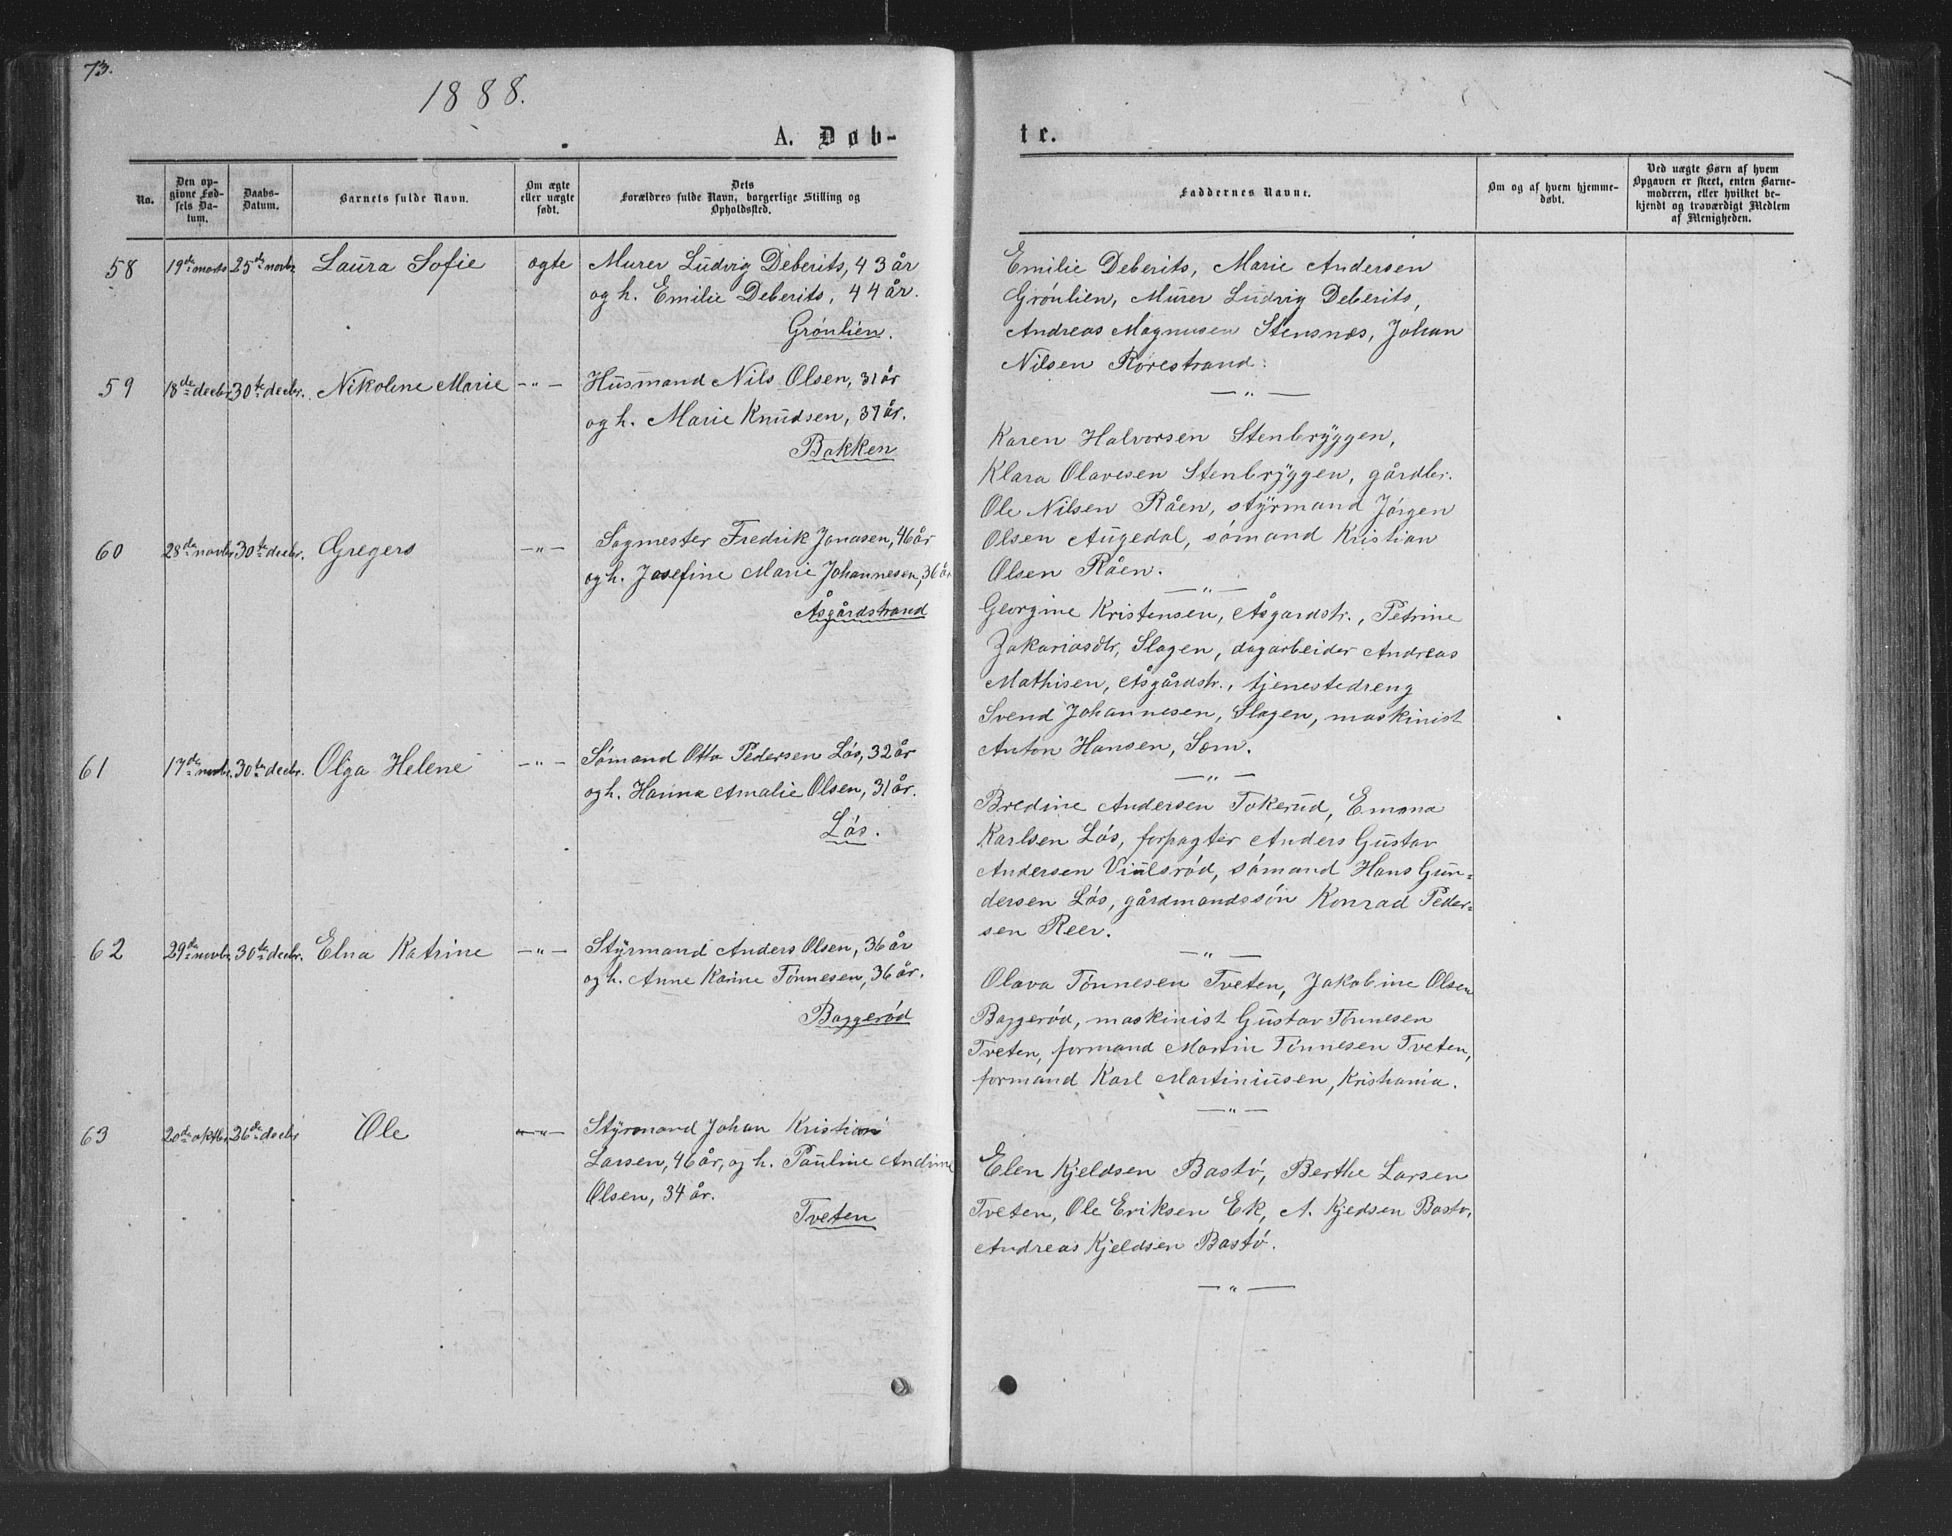 73.
1888.
A. Døb-
No.
Den op-
givne Fød-
sels Da-
tum.
Daabs-
Datum.
Barnets fulde Navn.
Om ægte
eller uægte
født.
Dets
Forældres fulde Navn, borgerlige Stilling og
Opholdssted.
58 19de 25de Laura Sofie ægte Murer Ludvig Deberits, 43 år
og h. Emilie Deberits, 44 år.
Grønlien.
59 18de decbr. 30te decbr. Nikoline Marie —"— Husmand Nils Olsen, 31 år
og h. Marie Knudsen, 37 år.
Bakken
60 28de novbr. 30te decbr. Gregers —"— Sagmester Fredrik Jonasen, 46 år
og h. Josefine Marie Johannesen, 36 år
Åsgårdstrand
61 17de novbr. 30te decbr. Olga Helene —"— Sømand Otto Pedersen Løs, 32 år
og h. Hanna Amalie Olsen, 31 år.
Løs.
62 29de novbr. 30te decbr. Elna Katrine —"— Styrmand Anders Olsen, 36 år
og h. Anne Karine Tønnesen, 36 år.
Baggerød
63 20de oktbr. 26de decbr. Ole —"— Styrmand Johan Kristian
Larsen, 46 år, og h. Pauline Andrine
Olsen, 34 år.
Tveten
te.
Faddernes Navne.
Om og af hvem hjemme-
døbt.
Ved uægte Børn af hvem
Opgaven er skeet, enten Barne-
moderen, eller hvilket be-
kjendt og troværdigt Medlem
af Menigheden.
Emilie Deberits, Marie Andersen
Grønlien, Murer Ludvig Deberits,
Andreas Magnusen Stensnæs, Johan
Nilsen Rørestrand.
—"—
Karen Halvorsen Stenbryggen,
Klara Olavesen Stenbryggen, gårdbr.
Ole Nilsen Råen, styrmand Jørgen
Olsen Augedal, sømand Kristian
Olsen Råen.
—"—
Georgine Kristensen, Åsgardstr., Petrine
Zakariasdtr, Slagen, dagarbeider Andreas
Mathisen, Åsgårdstr., tjenestedreng
Svend Johannesen, Slagen, maskinist
Anton Hansen, Sem.
—"—
Bredine Andersen Tokerud, Emma
Karlsen Løs, forpagter Anders Gustav
Andersen Viulsrød, sømand Hans Gun=
dersen Løs, gårdmandssøn Konrad Peder=
sen Reer.
—"—
Olava Tønnesen Tveten, Jakobine Olsen
Baggerød, maskinist Gustav Tønnesen
Tveten, formand Martin Tønnesen Tveten,
formand Karl Martiniusen, Kristiania.
—"—
Elen Kjeldsen Bastø, Berthe Larsen
Tveten, Ole Eriksen Ek, A. Kjedsen Bastø,
Andreas Kjeldsen Bastø.
—"—